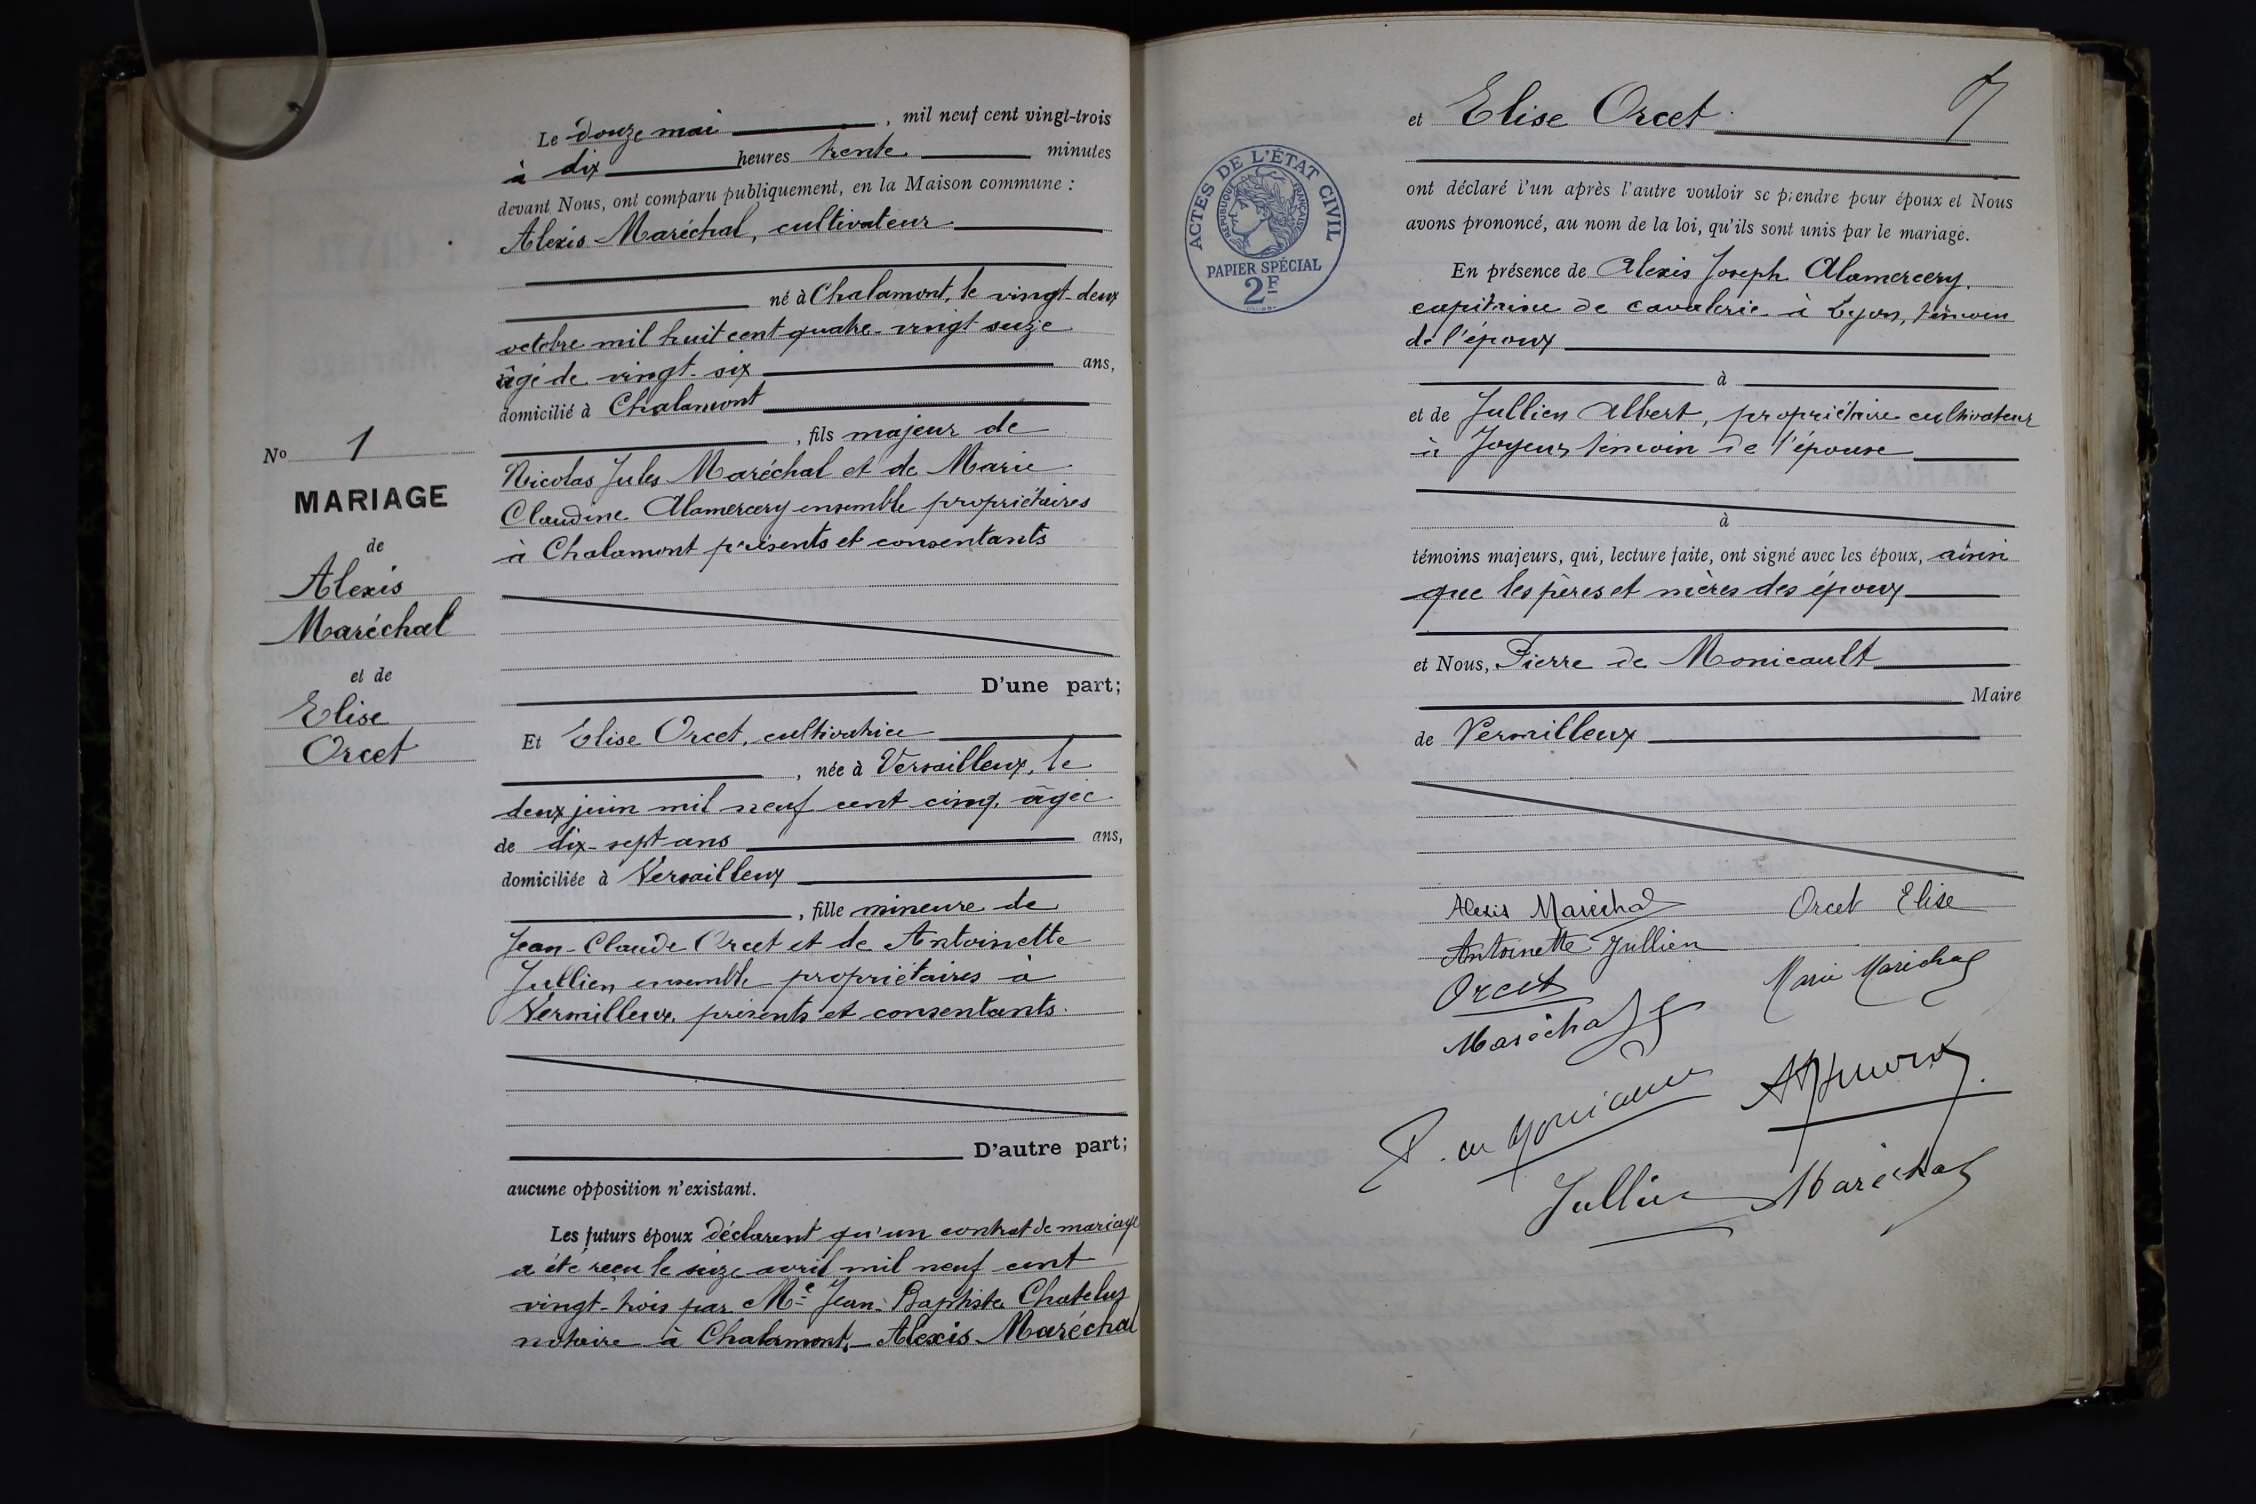 Le douze mai , mil neuf cent vingt-trois
à dix heures trente minutes
devant Nous, ont comparu publiquement, en la Maison commune :
Alexis Maréchal, cultivateur
né à Chalamont, le vingt-deux
octobre mil huit cent quatre-vingt seize
âgé de vingt-six ans,
domicilié à Chalamont
, fils majeur de
Nicolas Jules Maréchal et de Marie
Claudine Alamercery ensemble propriétaires
à Chalamont présents et consentants
D'une part;
No 1
MARIAGE
de
Alexis
Maréchal
et de
Elise
Orcet
Et Elise Orcet, cultivatrice
, née à Versailleux, le
deux juin mil neuf cent cinq, âgée
de dix-sept ans ans,
domiciliée à Versailleux
, fille mineure de
Jean-Claude Orcet et de Antoinette
Jullien ensemble propriétaires à
Versailleux, présents et consentants.
D'autre part;
aucune opposition n'existant.
Les futurs époux déclarent qu'un contrat de mariage
a été reçu le seize avril mil neuf cent
vingt-trois par Me Jean-Baptiste Chatelus
notaire à Chalamont. Alexis Maréchal
7
et Elise Orcet
ACTES DE L'ÉTAT CIVIL
RÉPUBLIQUE FRANÇAISE
PAPIER SPÉCIAL
2F
ont déclaré l'un après l'autre vouloir se prendre pour époux et Nous
avons prononcé, au nom de la loi, qu'ils sont unis par le mariage.
En présence de Alexis Joseph Alamercery,
capitaine de cavalerie à Lyon, témoin
de l'époux
à
et de Jullien Albert, propriétaire cultivateur
à Joyeux témoin de l'épouse
à
témoins majeurs, qui, lecture faite, ont signé avec les époux, ainsi
que les pères et mères des époux
et Nous, Pierre de Monicault
Maire
de Versailleux
Alexis Maréchal Orcet Elise
Antoinette Jullien
Orcet Marie Maréchal
Maréchal
P. de Monicault
Jullien Maréchal